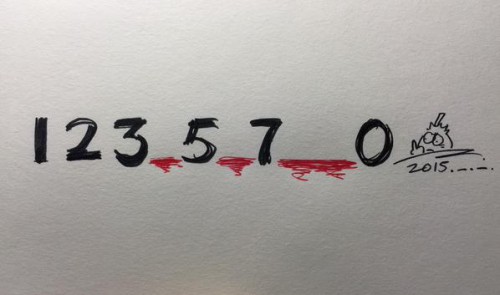 1 2 3 _ 5 _ 7 __ 0
2015._._.